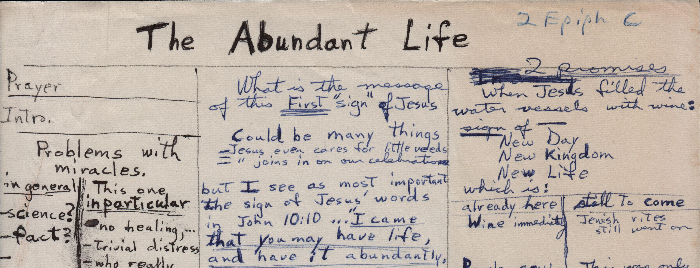 2 Epiph C
The Abundant Life
Prayer
Intro.
Problems with
miracles.
in general
-science?
-fact?
This one
inparticular
no healing,...
Trivial distress
who really
What is the message
of this First "sign" of Jesus
Could be many things
-Jesus even cares for little needs
- " joins in on our celebrations
but I see as most important
the sign of Jesus' words
in John 10:10 ... "I came
that you may have life,
and have it abundantly,
2 promises
When Jesus filled the
water vessels with wine:
sign of
New Day
New Kingdom
New Life
which is:
already here
Wine immediately
still to come
Jewish rites
still went on
This was only